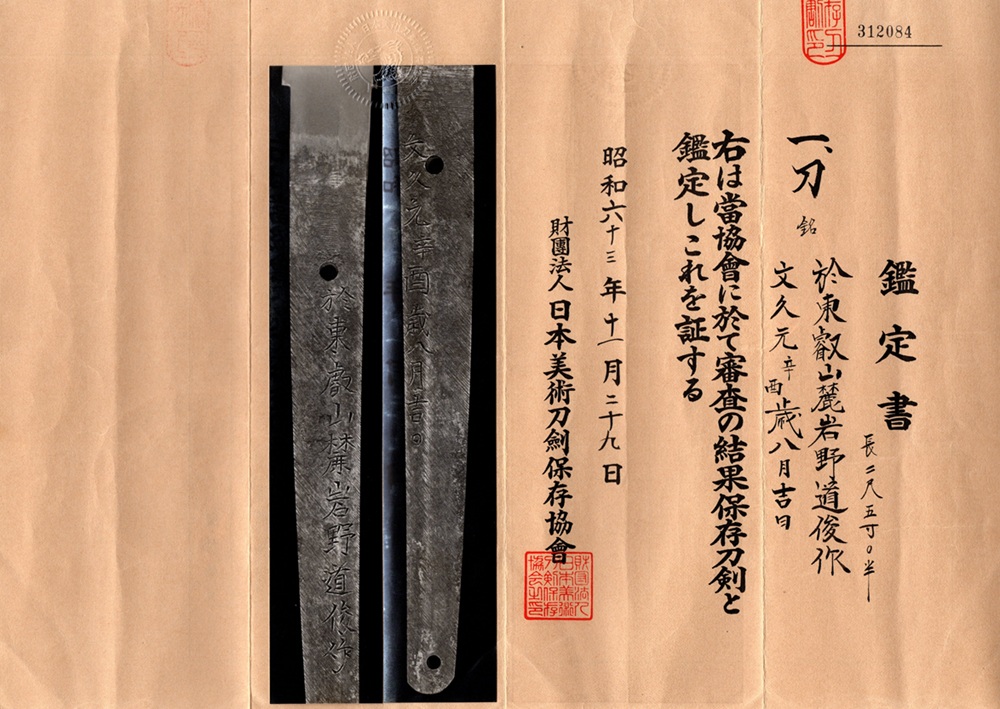 312084
鑑定書
長二尺五寸〇半
一、刀
銘
於東叡山麓岩野道俊作
文久元辛酉歳八月吉日
右は當協會に於て審査の結果保存刀剣と
鑑定しこれを証する
昭和六十三年十一月二十九日
財團法人日本美術刀劍保存協會
財団法人日本美術刀剣保存協会之印
文久元辛酉歳八月吉日
於東叡山麓岩野道俊作